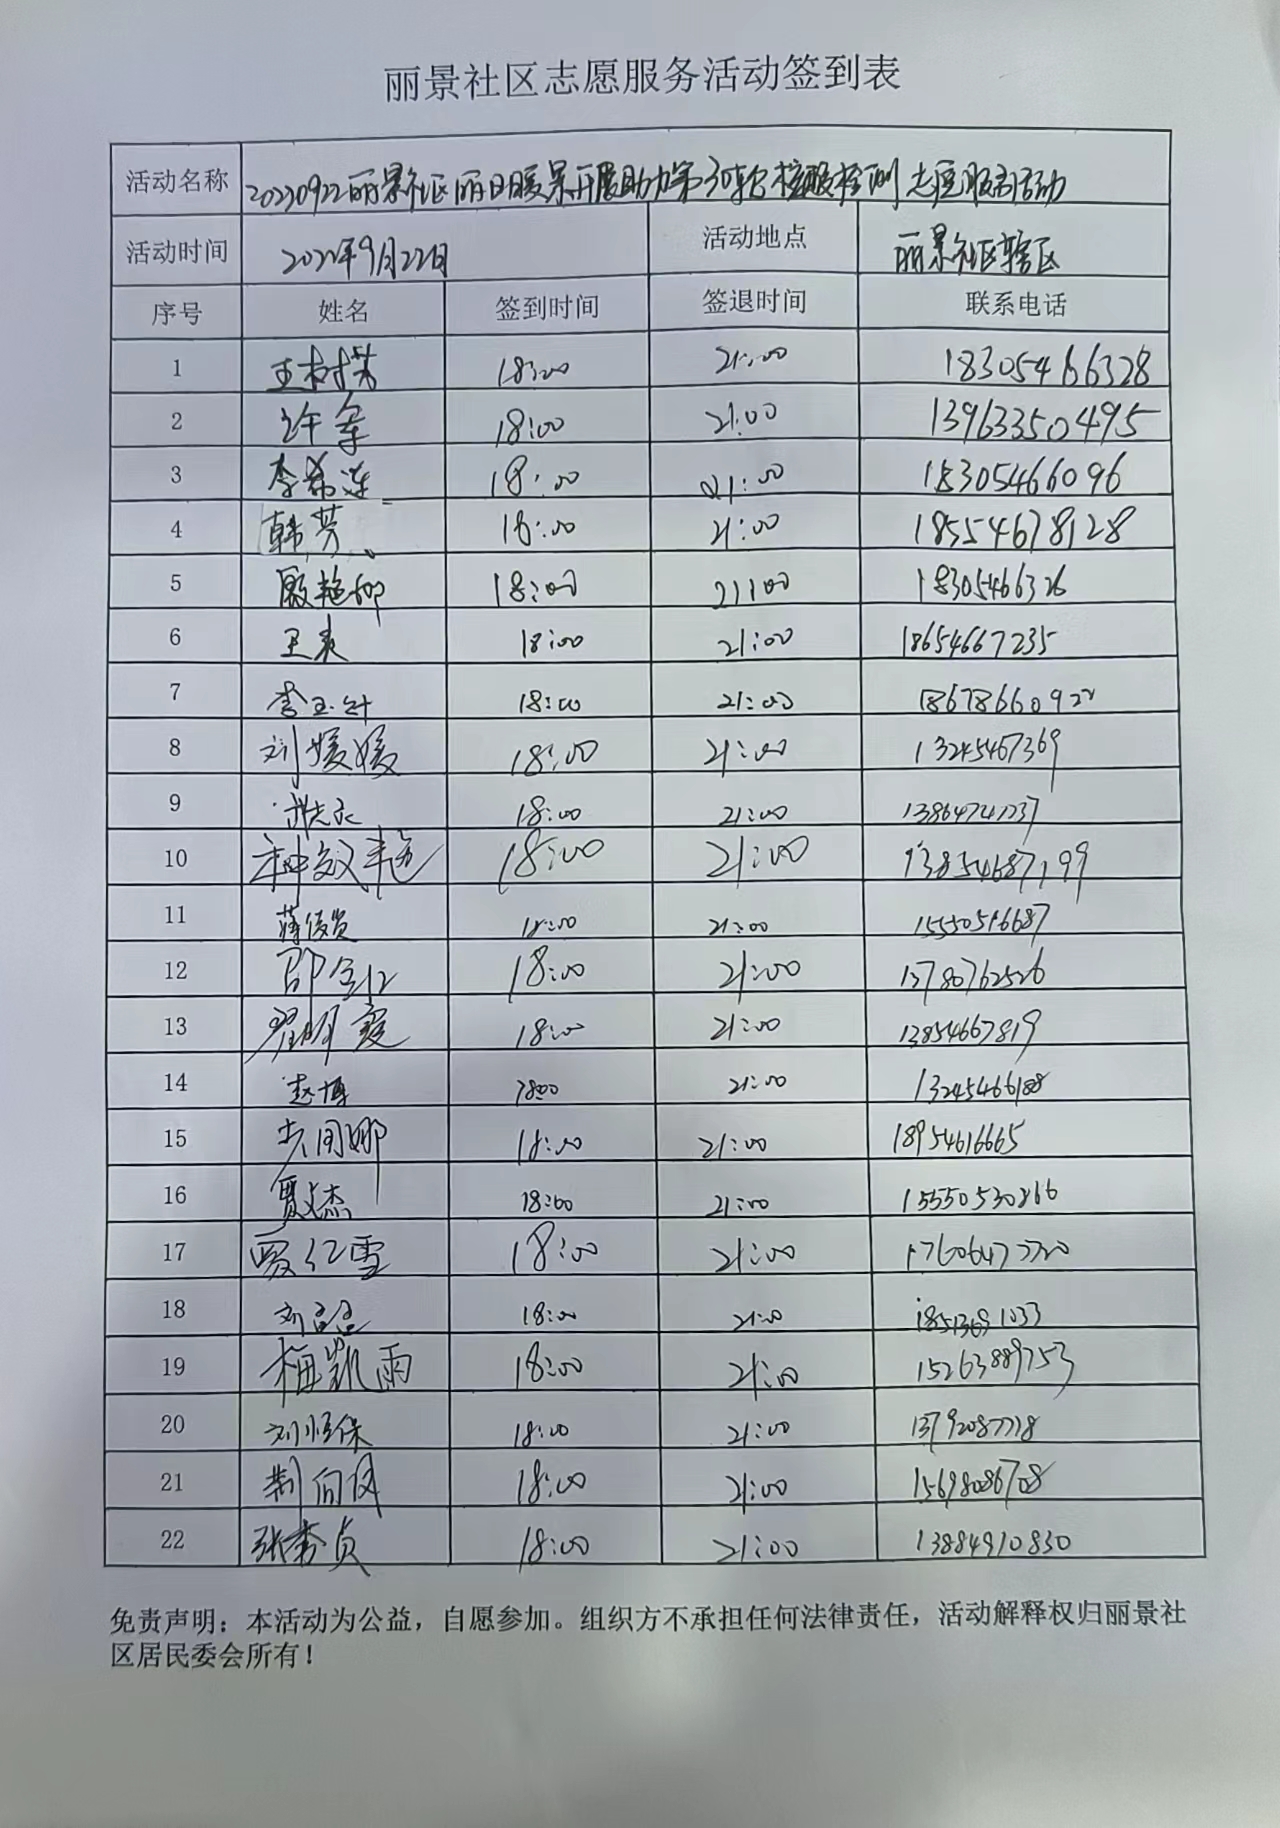 丽景社区志愿服务活动签到表
活动名称 20220922丽景社区丽日暖景开展助力第30轮核酸检测志愿服务活动
活动时间 2022年9月22日 活动地点 丽景社区辖区
序号 姓名 签到时间 签退时间 联系电话
1 王树芳 18:00 21:00 18305466328
2 许军 18:00 21:00 13963350495
3 李希莲 18:00 21:00 18305466096
4 韩芳 18:00 21:00 18554678128
5 殷艳柳 18:00 21:00 18305466326
6 王 18:00 21:00 18654667235
7 李玉 18:00 21:00 18678660922
8 刘媛媛 18:00 21:00 13245467369
9 18:00 21:00 13864741237
10 18:00 21:00 13854687199
11 蒋俊贵 18:00 21:00 15550516687
12 邵 18:00 21:00 13780762526
13 翟明霞 18:00 21:00 13854667819
14 赵博 18:00 21:00 13245466188
15 娜 18:00 21:00 18954616665
16 贾文杰 18:00 21:00 15550530866
17 贾红雪 18:00 21:00
18 刘 18:00 21:00
19 梅凯雨 18:00 21:00 15263889753
20 刘恒保 18:00 21:00 13792087718
21 荆向凤 18:00 21:00 15698086708
22 张秀贞 18:00 21:00 13884910830
免责声明：本活动为公益，自愿参加。组织方不承担任何法律责任，活动解释权归丽景社
区居民委会所有！